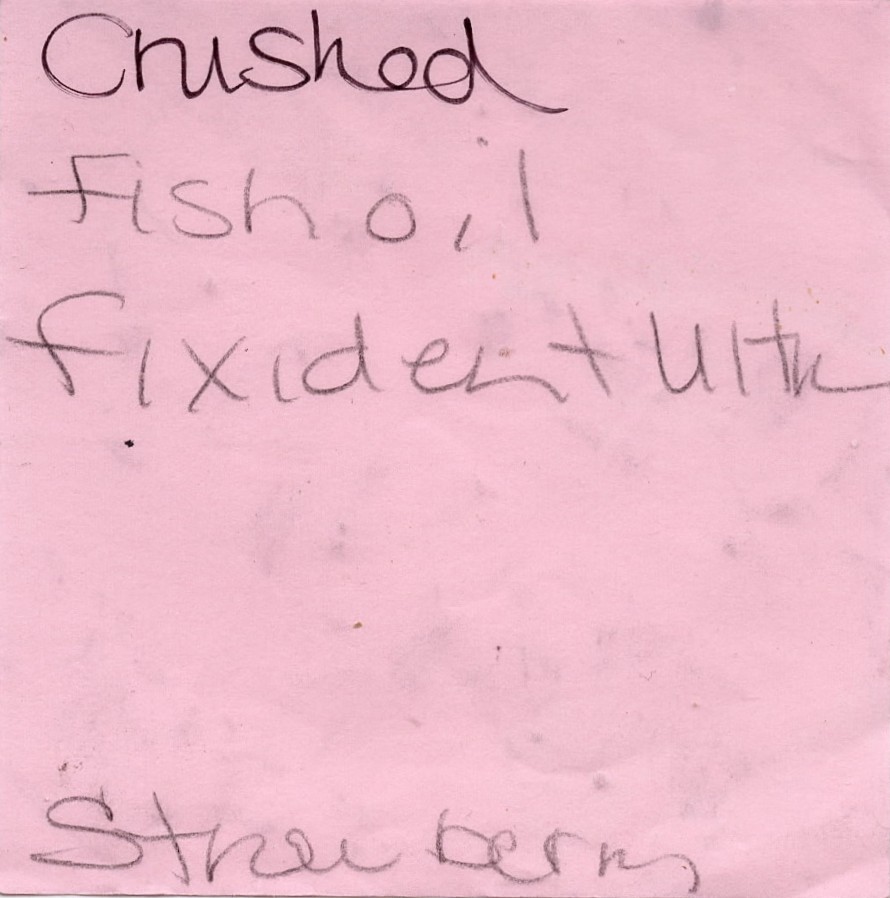 Crushed
fish oil
fixident Ultra
Strawberry